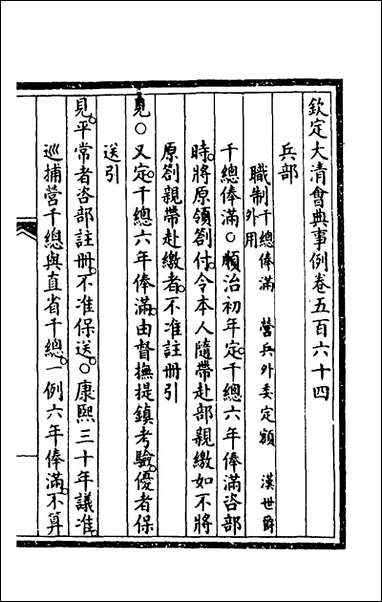 欽定大清會典事例卷五百六十四
兵部
職制千總俸滿 營兵外委定額 漢世爵
外用
千總俸滿○順治初年定千總六年俸滿咨部
時將原領劄付令本人隨帶赴部親繳如不將
原劄親帶赴繳者不准註冊引
見○又定千總六年俸滿由督撫提鎮考驗優者保
送引
見平常者咨部註冊不准保送○康熙三十年議准
巡捕營千總與直省千總一例六年俸滿不算